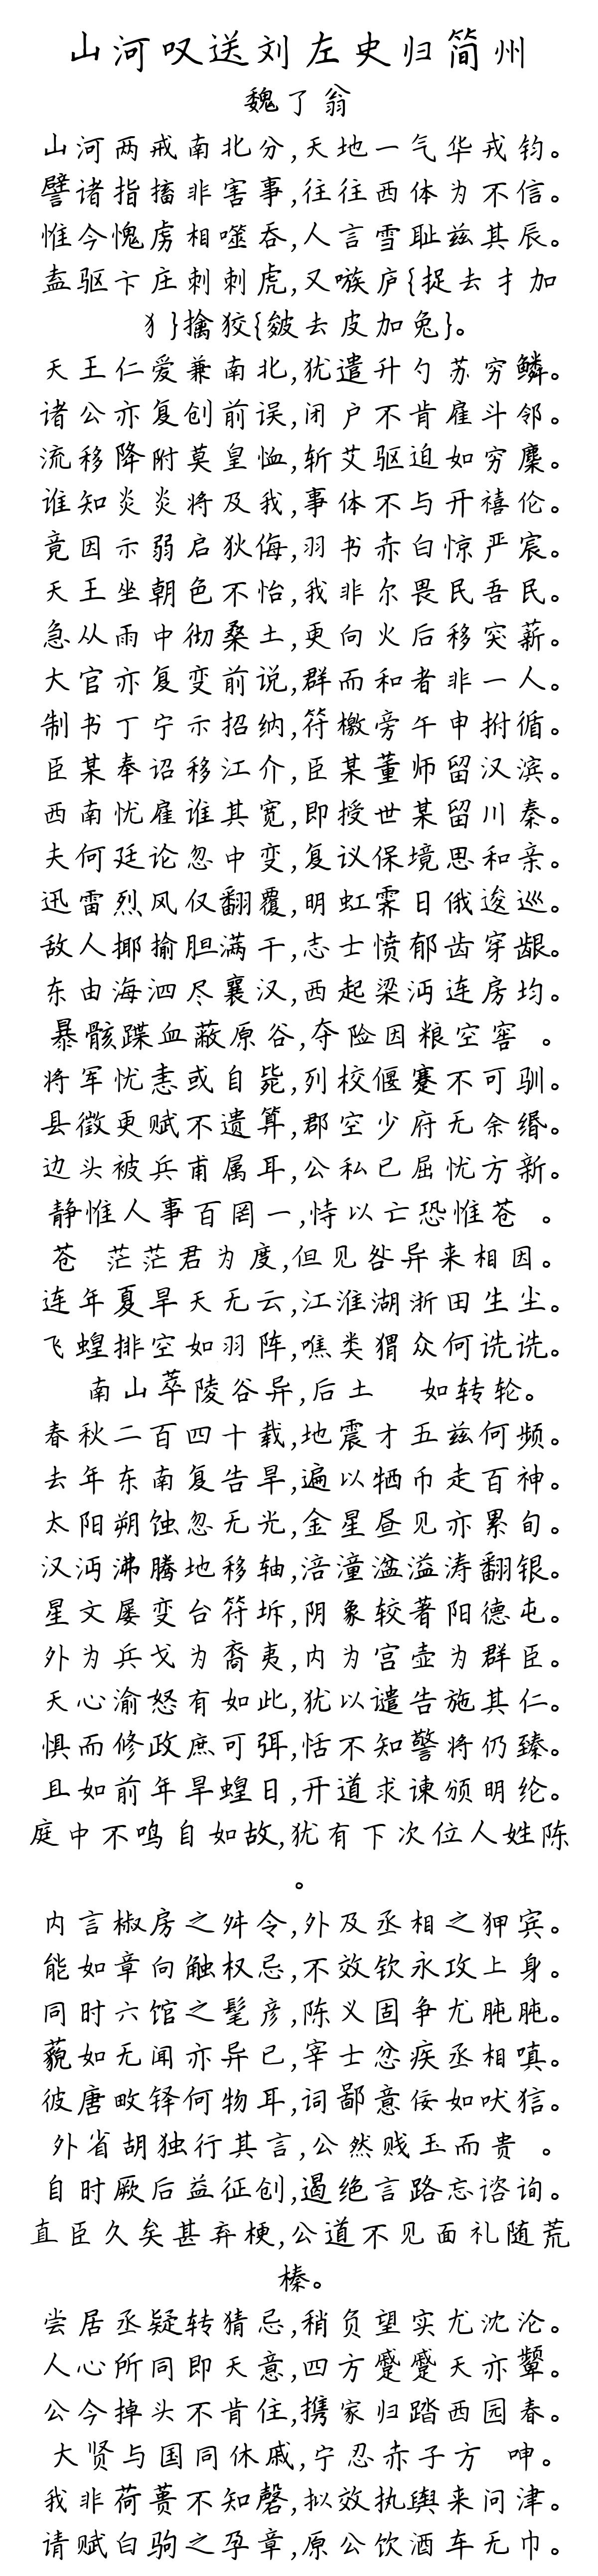 山河叹送刘左史归简州
魏了翁
山河两戒南北分,天地一气华戎钧。
譬诸指搐非害事,往往西体为不信。
惟今愧虏相噬吞,人言雪耻兹其辰。
盍驱卞庄刺刺虎,又嗾庐{捉去扌加
犭}擒狡{皴去皮加兔}。
天王仁爱兼南北,犹遣升勺苏穷鳞。
诸公亦复创前误,闭户不肯雇斗邻。
流移降附莫皇恤,斩艾驱迫如穷麇。
谁知炎炎将及我,事体不与开禧伦。
竟因示弱启狄侮,羽书赤白惊严宸。
天王坐朝色不怡,我非尔畏民吾民。
急从雨中彻桑土,更向火后移突薪。
大官亦复变前说,群而和者非一人。
制书丁宁示招纳,符檄旁午申拊循。
臣某奉诏移江介,臣某董师留汉滨。
西南忧雇谁其宽,即授世某留川秦。
夫何廷论忽中变,复议保境思和亲。
迅雷烈风仅翻覆,明虹霁日俄逡巡。
敌人揶揄胆满干,志士愤郁齿穿龈。
东由海泗尽襄汉,西起梁沔连房均。
暴骸蹀血蔽原谷,夺险因粮空窖 。
将军忧恚或自毙,列校偃蹇不可驯。
县徵更赋不遗算,郡空少府无余缗。
边头被兵甫属耳,公私已屈忧方新。
静惟人事百罔一,恃以亡恐惟苍 。
苍 茫茫君为度,但见咎异来相因。
连年夏旱天无云,江淮湖浙田生尘。
飞蝗排空如羽阵,噍类猬众何诜诜。
南山萃陵谷异,后土 如转轮。
春秋二百四十载,地震才五兹何频。
去年东南复告旱,遍以牺币走百神。
太阳朔蚀忽无光,金星昼见亦累旬。
汉沔沸腾地移轴,涪潼湓溢涛翻银。
星文屡变台符坼,阴象较著阳德屯。
外为兵戈为裔夷,内为宫壶为群臣。
天心渝怒有如此,犹以谴告施其仁。
惧而修政庶可弭,恬不知警将仍臻。
且如前年旱蝗日,开道求谏颁明纶。
庭中不鸣自如故,犹有下次位人姓陈
。
内言椒房之舛令,外及丞相之狎宾。
能如章向触权忌,不效钦永攻上身。
同时六馆之髦彦,陈义固争尤肫肫。
藐如无闻亦异已,宰士忿疾丞相嗔。
彼唐畋铎何物耳,词鄙意佞如吠狺。
外省胡独行其言,公然贱玉而贵 。
自时厥后益征创,遏绝言路忘谘询。
直臣久矣甚弃梗,公道不见面礼随荒
榛。
尝居丞疑转猜忌,稍负望实尤沈沦。
人心所同即天意,四方蹙蹙天亦颦。
公今掉头不肯住,携家归踏西园春。
大贤与国同休戚,宁忍赤子方 呻。
我非荷蒉不知磬,拟效执舆来问津。
请赋白驹之孕章,原公饮酒车无巾。